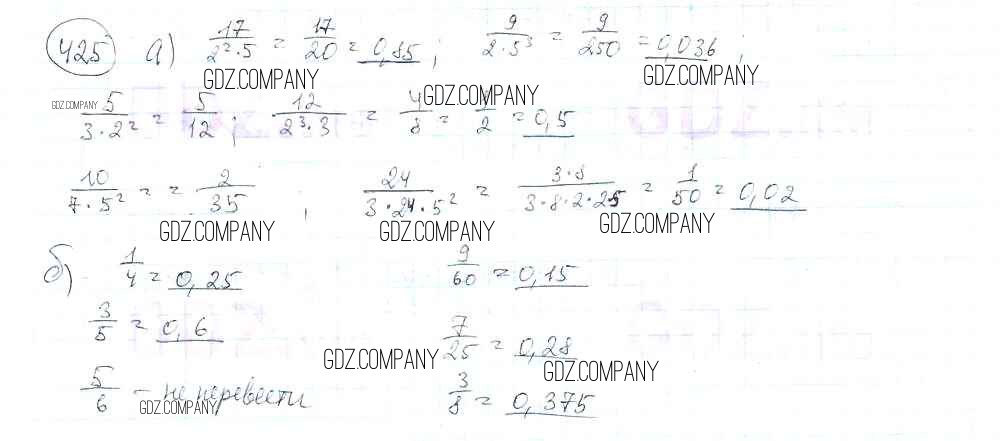 425 а) 17/(2²·5) = 17/20 = 0,85; 9/(2·5³) = 9/250 = 0,036;
GDZ.COMPANY GDZ.COMPANY
GDZ.COMPANY GDZ.COMPANY
5/(3·2²) = 5/12; 12/(2³·3) = 4/8 = 1/2 = 0,5
10/(7·5²) = = 2/35; 24/(3·24·5²) = 3·8/(3·8·2·25) = 1/50 = 0,02
GDZ.COMPANY GDZ.COMPANY GDZ.COMPANY
б) 1/4 = 0,25 9/60 = 0,15
3/5 = 0,6 7/25 = 0,28
GDZ.COMPANY GDZ.COMPANY
5/6 – не перевести 3/8 = 0,375
GDZ.COMPANY